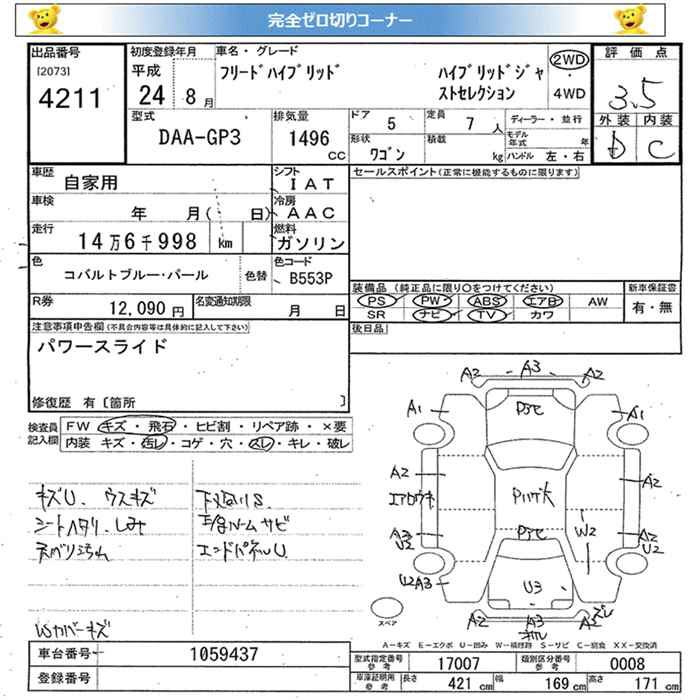 完全ゼロ切りコーナー
出品番号
[2073]
4211
初度登録年月
平成
24 8月
車名・グレード
フリードハイブリッド
ハイブリッドジャ
ストセレクション
2WD
4WD
評価点
3.5
外装 内装
D C
型式
DAA-GP3
排気量
1496
CC
ドア
5
定員
7人
形状
ワゴン
積載
kg
ディーラー・並行
モデル年式 年
ハンドル 左・右
車歴
自家用
シフト
IAT
車検
年 月( 日)
冷房
AAC
走行
14万6千998 km
燃料
ガソリン
色
コバルトブルー・パール
色替
色コード
B553P
R券
12,090円
名変通知期限
月 日
セールスポイント(正常に機能するものに限ります)
装備品(純正品に限り○をつけてください)
PS PW ABS エアB AW
SR ナビ TV カワ
新車保証書
有・無
後日品
注意事項申告欄(不具合内容等は具体的に記入して下さい)
パワースライド
修復歴 有〔箇所 〕
検査員
記入欄
FW キズ・飛石・ヒビ割・リペア跡・×要
内装 キズ・汚レ・コゲ・穴・スレ・キレ・破レ
キズU. ウスキズ
シートヘタリ. しみ
下廻りS
エンドパネルU
Wカバーキズ
A2 A3 A2
A1 A1
A2 A2
エアロウキ
A3 U2
W2
A2 U2
U2A3
U3
A2 A3 A2
ズレ
スペア
A-キズ E-エクボ U-凹み W-補修跡 S-サビ C-腐食 XX-交換済
車台番号
1059437
登録番号
型式指定番号
参考
17007
類別区分番号
参考
0008
車庫証明用
参考
長さ 421 cm 幅 169 cm 高さ 171 cm